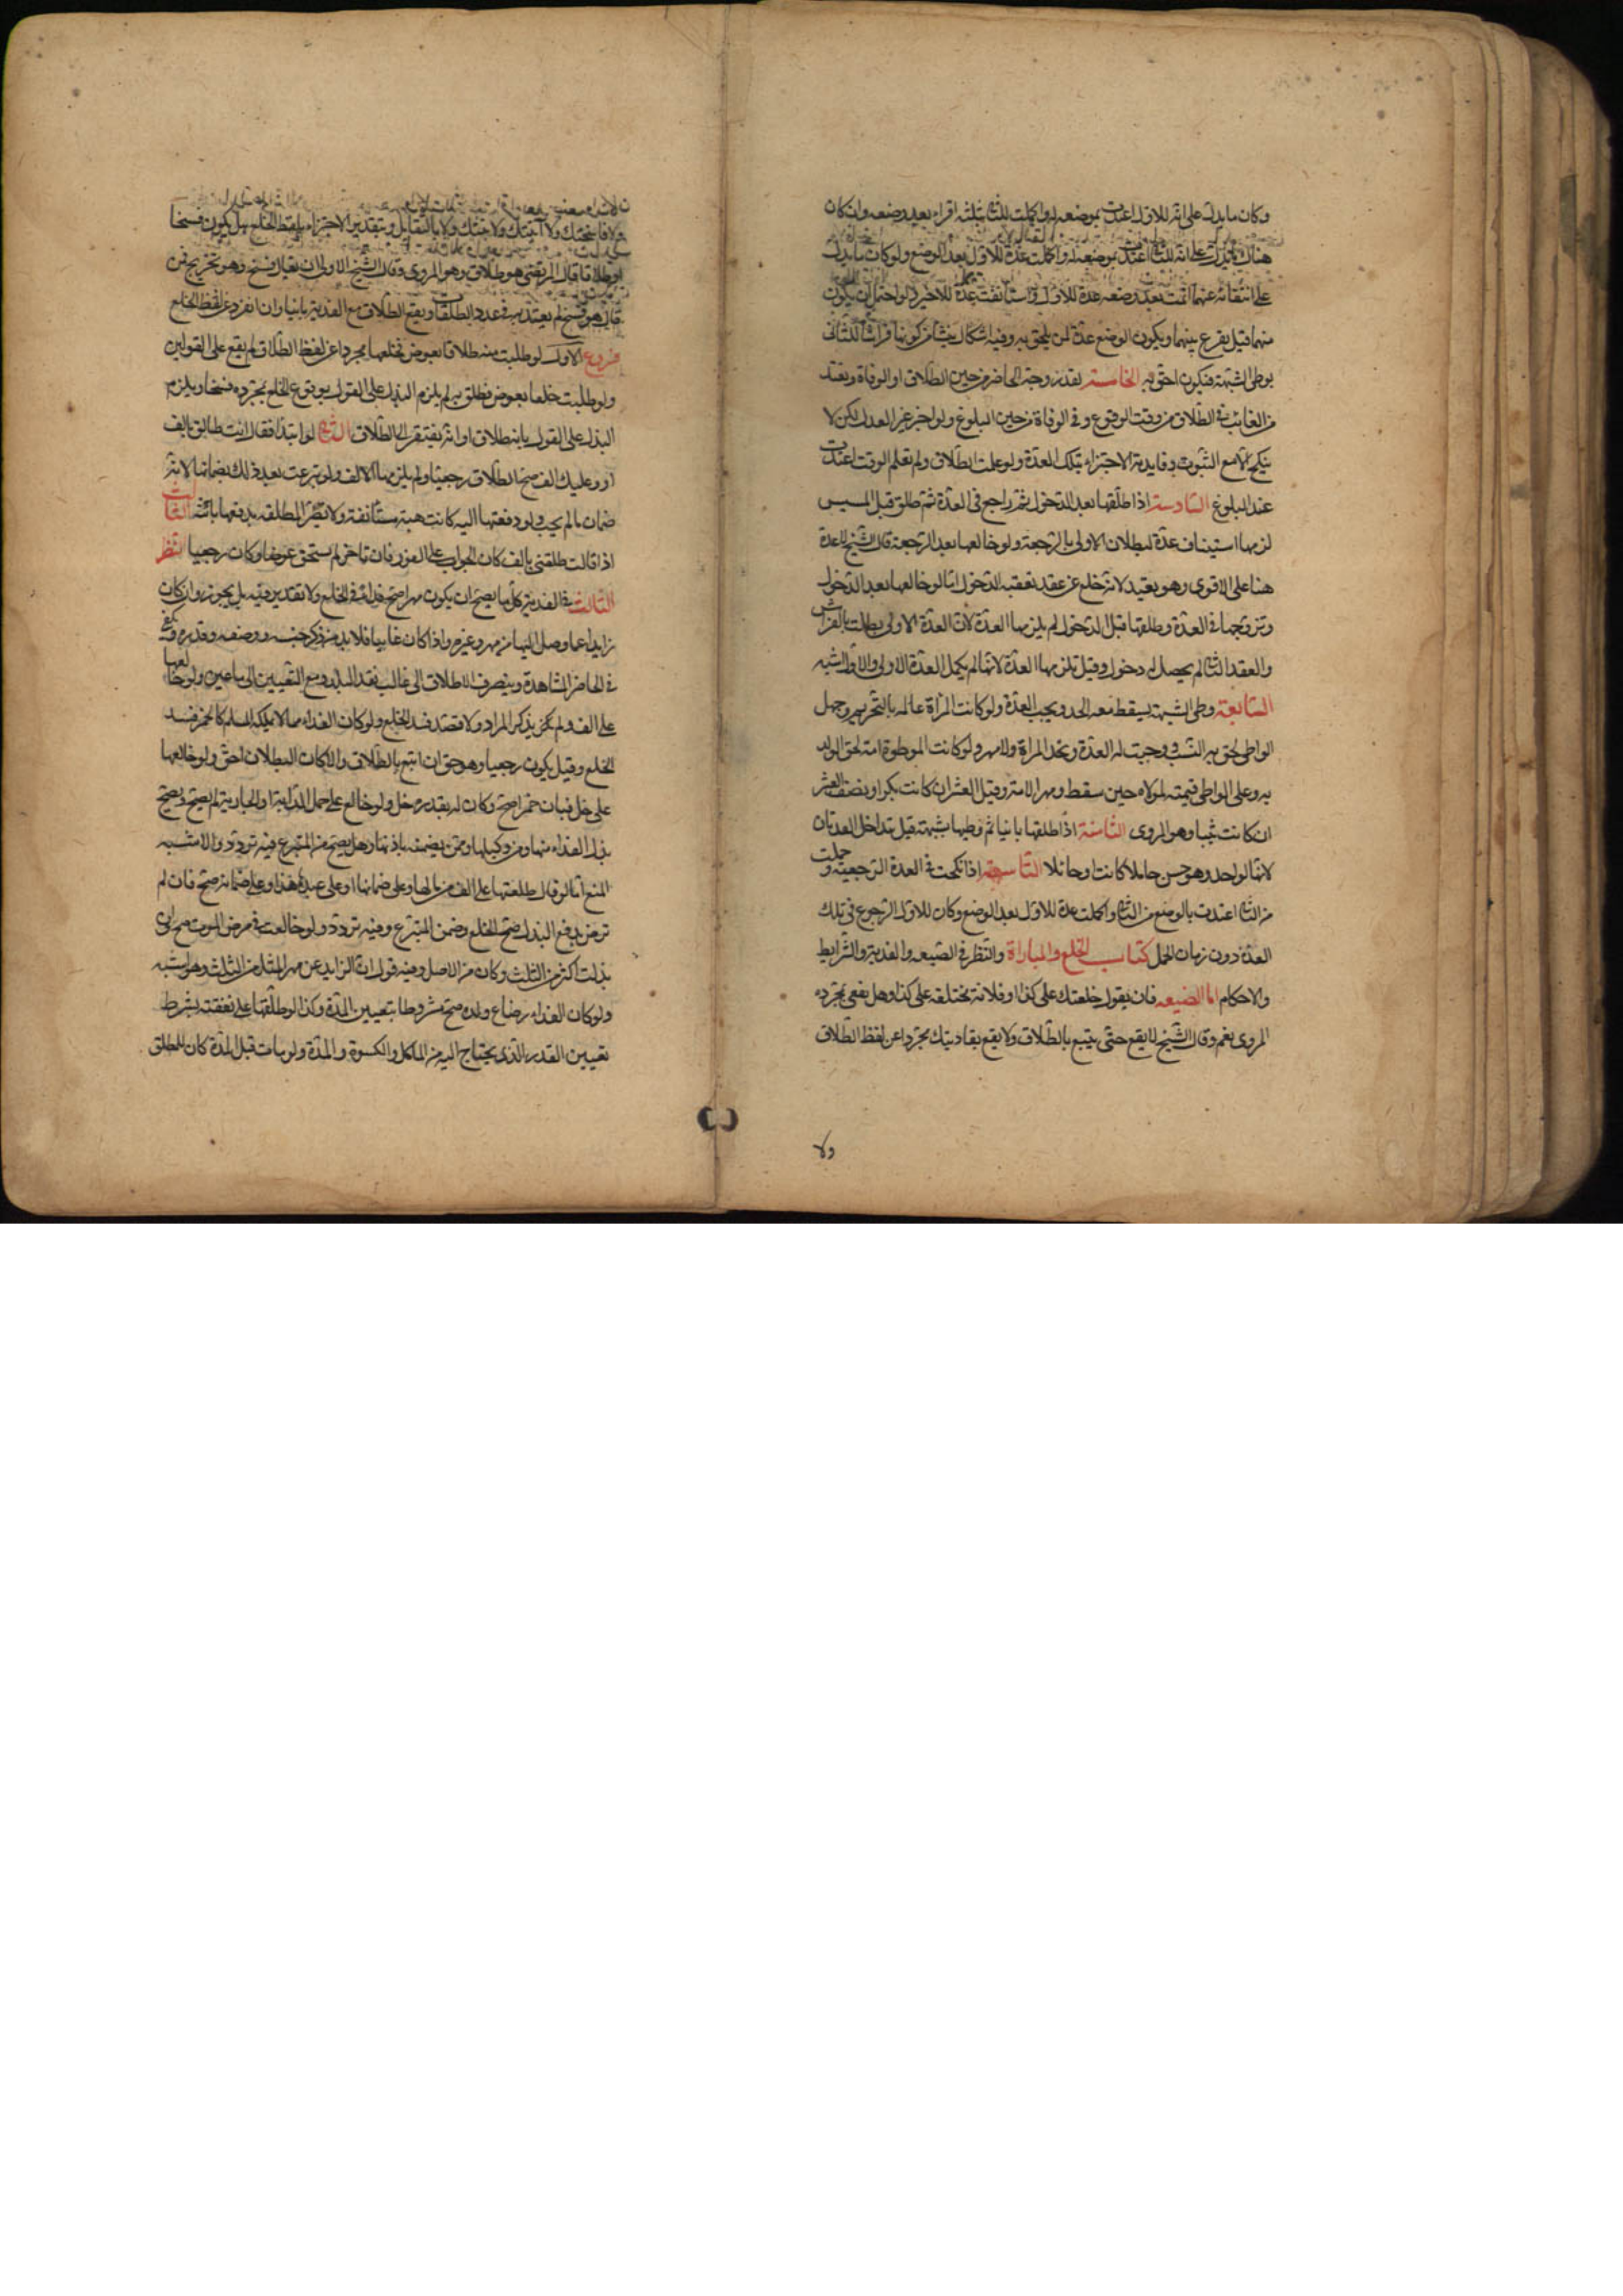 وكان ما يدل على انه للاول اعتدت بوضعه له واكملت للثاني بثلثة اقراء بعد وضعه وان كان
هناك ما يدل على انه للثاني اعتدت بوضعه له واكملت عدة للاول بعد الوضع ولو كان ما يدل
على انتفائه عنهما اتمت بعد وضعه عدة للاول واستأنفت عدة للاخير ولو احتمل ان يكون
منهما قيل يقرع بينهما ويكون الوضع عدة لمن يلحق به وفيه اشكال ينشأ من كونها فراشا للثاني
بوطى الشبهة فيكون احق به الخامسة تعتد زوجة الحاضر من حين الطلاق او الوفاة وتعتد
من الغائب في الطلاق من وقت الوقوع وفي الوفاة من حين البلوغ ولو اخبر غير العدل لكن لا
تنكح الا مع الثبوت وفايدته الاجتزاء بتلك العدة ولو علمت الطلاق ولم تعلم الوقت اعتدت
عند البلوغ السادسة اذا طلقها بعد الدخول ثم راجع في العدة ثم طلق قبل المسيس
لزمها استيناف عدة لبطلان الاولى بالرجعة ولو خالعها بعد الرجعة قال الشيخ لا عدة
هنا على الاقوى وهو بعيد لانه خلع عن عقد تعقبه الدخول اما لو خالعها بعد الدخول
وتزوجها في العدة وطلقها قبل الدخول لم يلزمها العدة لان العدة الاولى بطلت بالفراش
والعقد الثاني لم يحصل له دخول وقيل تلزمها العدة لانها لم يكمل العدة الاولى والاول اشبه
السابعة وطى الشبهة يسقط معه الحد ويجب العدة ولو كانت المرأة عالمة بالتحريم وجهل
الواطى لحق به النسب ووجبت له العدة وتحد المراة ولا مهر ولو كانت الموطوة امة لحق الولد
به وعلى الواطى قيمته لمولاه حين سقط ومهر الامة وقيل العشر ان كانت بكرا ونصف العشر
ان كانت ثيبا وهو المروى الثامنة اذا طلقها باينا ثم وطيها بشبهة قيل تتداخل العدتان
لانهما لواحد وهو حسن حاملا كانت او حائلا التاسعة اذا نكحت في العدة الرجعية وحملت
من الثاني اعتدت بالوضع من الثاني واكملت عدة للاول بعد الوضع وكان للاول الرجوع في تلك
العدة دون زمان الحمل كتاب الخلع والمباراة والنظر في الصيغه والفدية والشرايط
والاحكام اما الصيغه فان يقول خلعتك على كذا او فلانة مختلعة على كذا وهل يقع بمجرده
المروى نعم وقال الشيخ لا يقع حتى يتبع بالطلاق ولا يقع بفاديتك مجردا عن لفظ الطلاق
ولا
ولا فاسختك ولا ابنتك ولا بتتك ولا بالتقايل وبتقدير الاجتزاء بلفظ الخلع هل يكون فسخا
او طلاقا قال المرتضى هو طلاق وهو المروى وقال الشيخ الاولى ان يقال فسخ وهو تخريج فمن
قال هو فسخ لم يعتد به في عدد الطلقات ويقع الطلاق مع الفدية باينا وان انفرد عن لفظ الخلع
فروع الاول لو طلبت منه طلاقا بعوض فخلعها مجردا عن لفظ الطلاق لم يقع على القولين
ولو طلبت خلعا بعوض فطلق به لم يلزم البذل على القول بوقوع الخلع بمجرده فسخا ويلزم
البذل على القول بانه طلاق او انه يفتقر الى الطلاق لو ابتدأ فقال انت طالق بالف
او وعليك الف صح الطلاق رجعيا ولم يلزمها الالف ولو تبرعت بعد ذلك بضمانها لانه
ضمان ما لم يجب ولو دفعتها اليه كانت هبة مستأنفة ولا تصير المطلقه بدفعها بائنة الثالث
اذا قالت طلقني بالف كان الجواب على الفور فان تاخر لم يستحق عوضا وكان رجعيا النظر
الثاني في الفدية كل ما يصح ان يكون مهرا صح فداء في الخلع ولا تقدير فيه بل يجوز ولو كان
زايدا عما وصل اليها من مهر وغيره واذا كان غايبا فلا بد من ذكر جنسه ووصفه وقدره ويكفي
في الحاضر المشاهدة وينصرف الاطلاق الى غالب نقد البلد ومع التعيين الى ما عين ولو خالعها
على الف ولم يكن يذكر المراد ولا قصد فسد الخلع ولو كان الفداء مما لا يملكه المسلم كالخمر فسد
الخلع وقيل يكون رجعيا وهو حق ان اتبع بالطلاق والا كان البطلان احق ولو خالعها
على خل فبان خمرا صح وكان له بقدره خل ولو خالع على حمل الدابة او الجارية لم يصح ويصح
بذل الفداء منها ومن وكيلها وممن يضمنه باذنها وهل يصح من المتبرع فيه تردد والاشبه
المنع اما لو قال طلقتها على الف من مالها وعلى ضمانها او على عبدها هذا وعلى ضمانه صح فان لم
ترض بدفع البذل صح الخلع وضمن المتبرع وفيه تردد ولو خالعت في مرض الموت صح وان
بذلت اكثر من الثلث وكان من الاصل وفيه قول ان الزايد عن مهر المثل من الثلث وهو اشبه
ولو كان الفداء رضاع ولده صح مشروطا بتعيين المدة وكذا لو طلقها على نفقته بشرط
تعيين القدر الذي يحتاج اليه من الماكل والكسوة والمدة ولو مات قبل المدة كان للمطلق